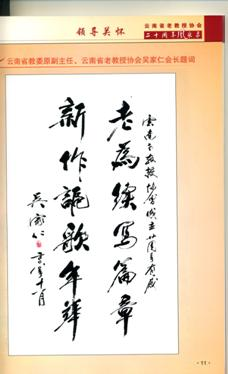 领导关怀
云南省老教授协会
二十周年风采录
云南省教委原副主任、云南省老教授协会吴家仁会长题词
云南老教授协会成立廿周年有感
老为续写篇章
新作讴歌年华
吴家仁
十一月
·11·